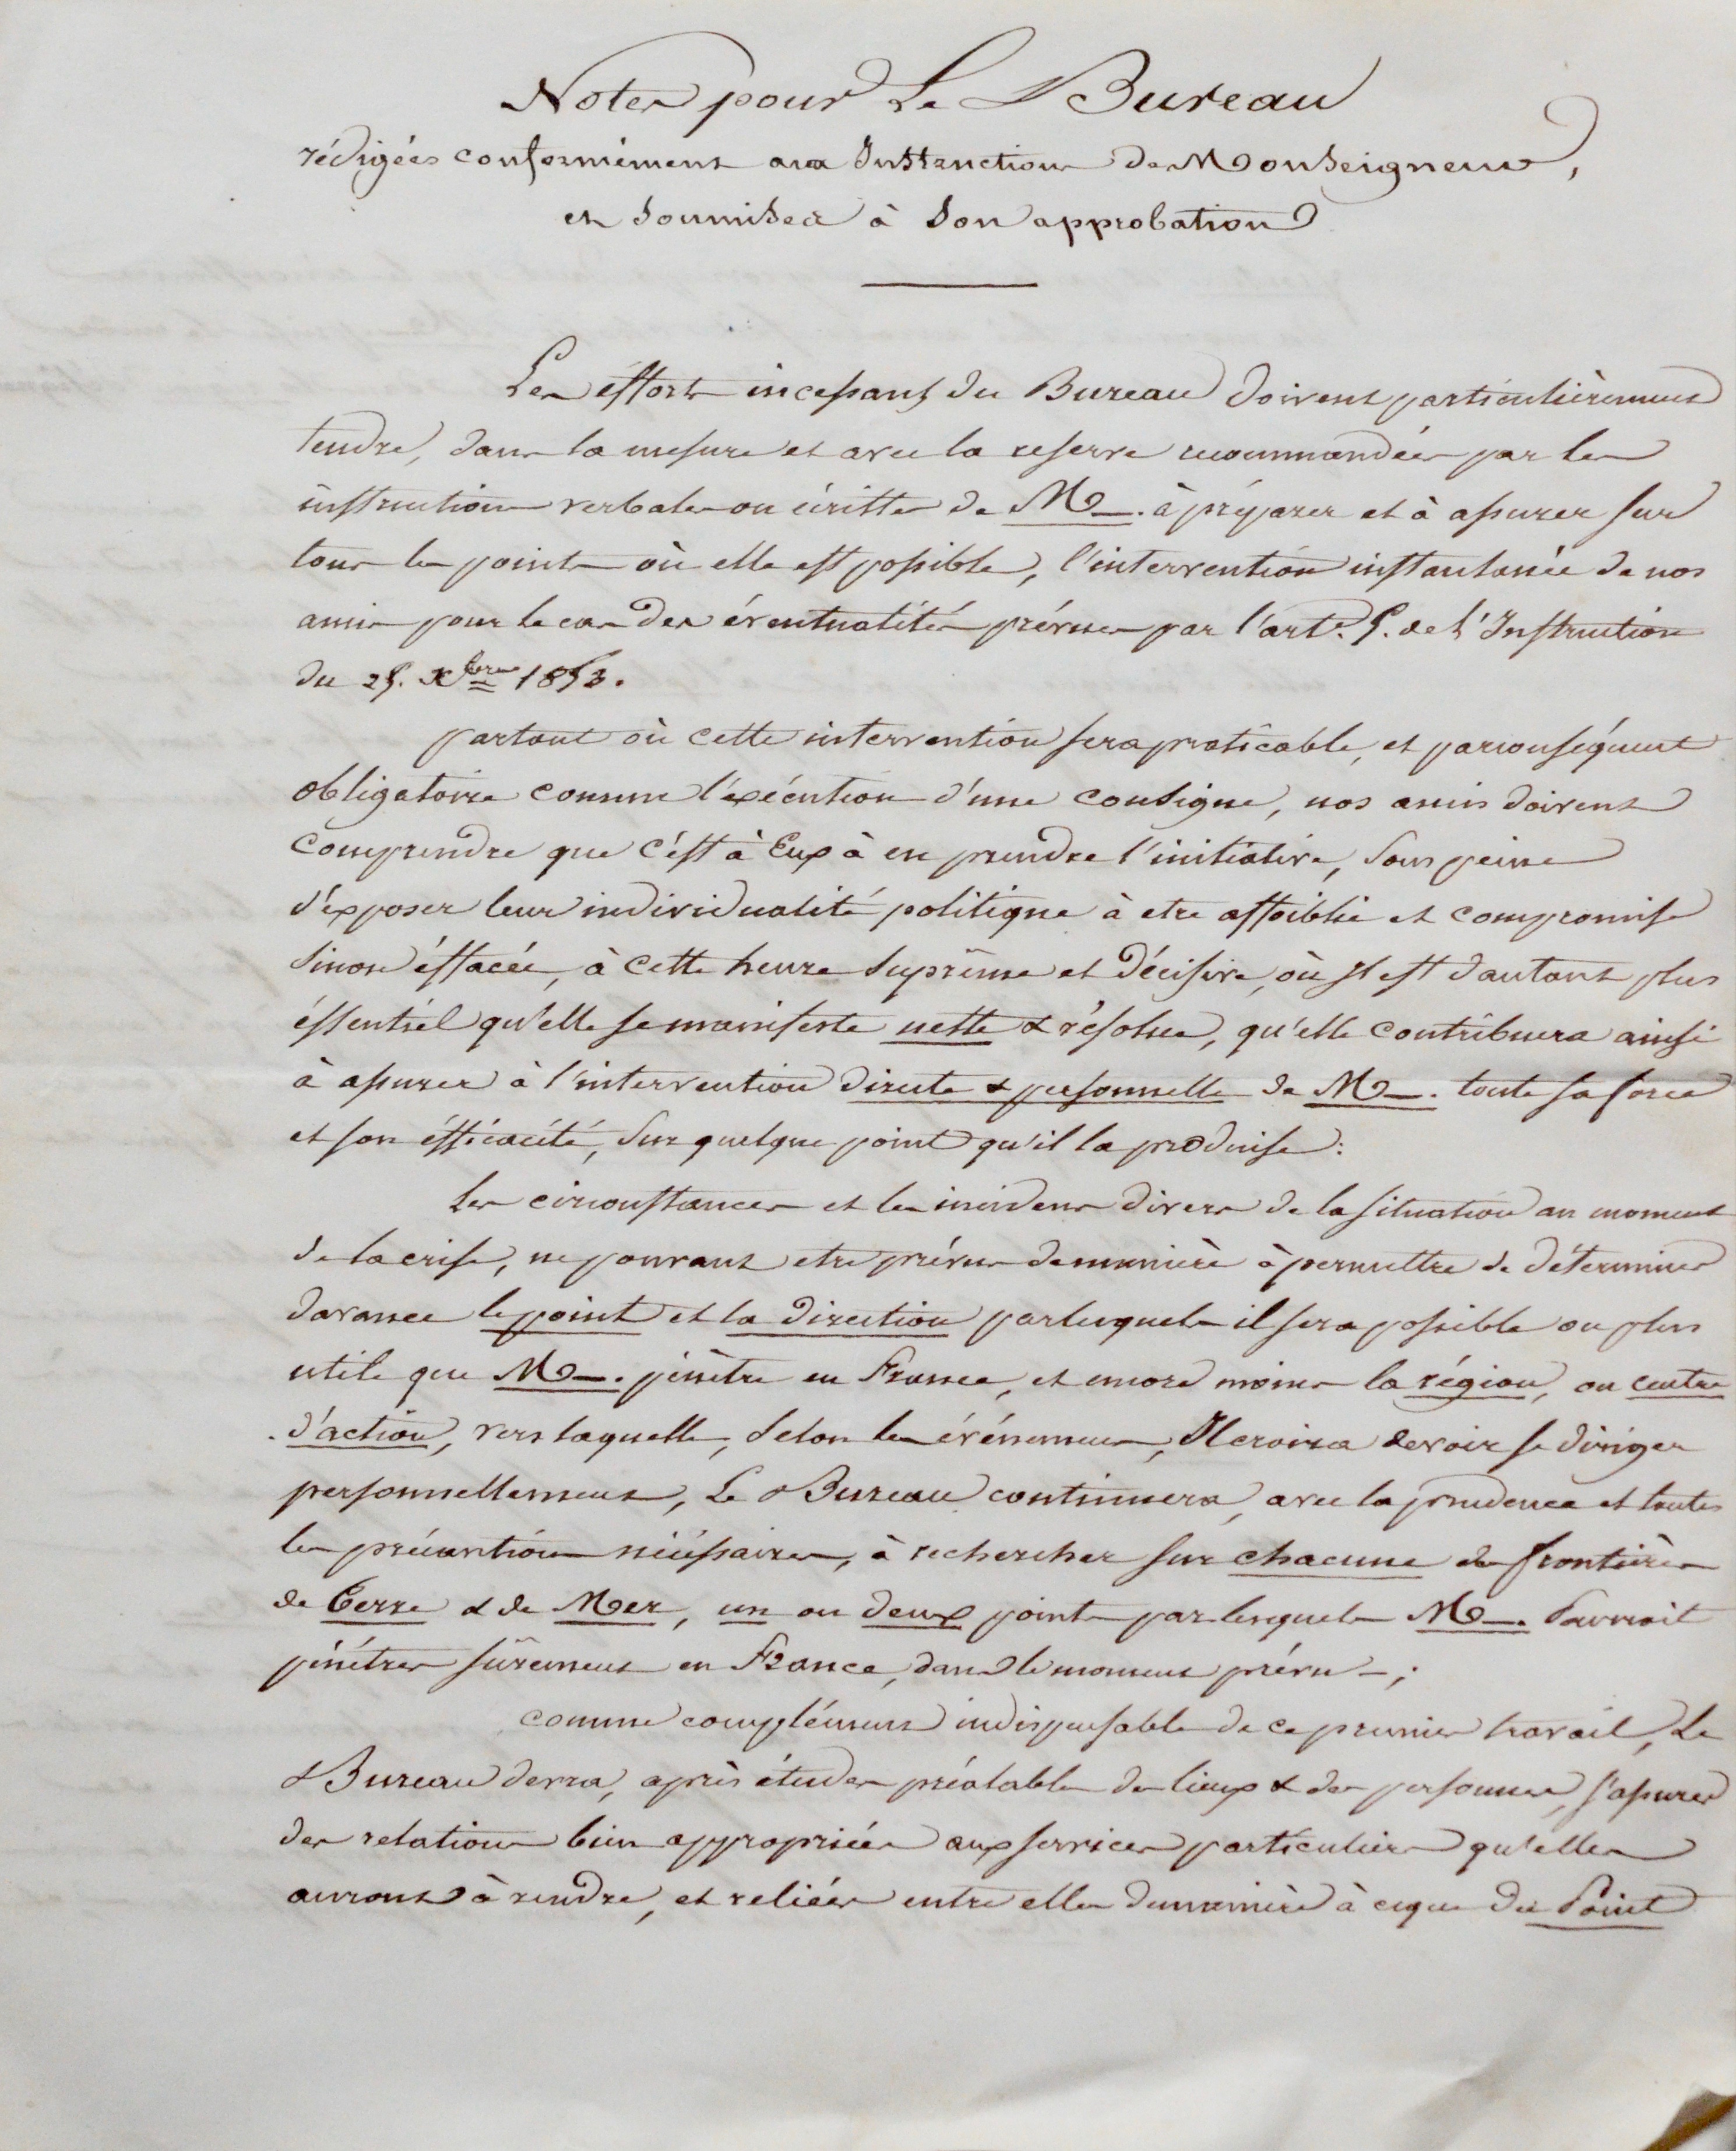 Notes pour Le Bureau
rédigées conformément aux Instructions de Monseigneur,
et soumises à son approbation
Les éfforts incessants du Bureau doivent particulièrement
tendre, dans la mesure et avec la reserve recommandées par les
instructions verbales ou écrittes de M—. à préparer et à assurer sur
tous les points où elle est possible, l'intervention instantanée de nos
amis pour le cas des éventualités prévues par l'art. 5. de l'Instruction
du 25. Xbre 1853.
partout où cette intervention sera praticable, et par conséquent
obligatoire comme l'éxécution d'une consigne, nos amis doivent
comprendre que c'est à Eux à en prendre l'initiative, sous peine
d'éxposer leur individualité politique à etre affoiblie et compromise
sinon éffacée, à cette heure suprême et décisive, où Il est d'autant plus
éssentiel qu'elle se manifeste nette & résolue, qu'elle contribuera ainsi
à assurer à l'intervention directe & personnelle de M—. toute sa force
et son éfficacité, sur quelque point qu'il la produise.
Les circonstances et les incidens divers de la situation au moment
de la crise, ne pouvant etre prévus de manière à permettre de déterminer
d'avance le point et la direction par lesquels il sera possible ou plus
utile que M—. pénètre en France, et encore moins la région, ou centre
d'action, vers laquelle, selon les événemens, Il croira devoir se diriger
personnellement, Le Bureau continuera, avec la prudence et toutes
les précautions nécéssaires, à rechercher sur chacune des frontières
de Terre & de Mer, un ou deux points par lesquels M—. Pourroit
pénétrer sûrement en France, dans le moment prévu —;
comme complément indispensable de ce premier travail, Le
Bureau devra, après études préalables des lieux & des personnes, s'assurer
des relations bien appropriées aux services particuliers qu'elles
auront à rendre, et reliées entre elles de manière à ce que du Point